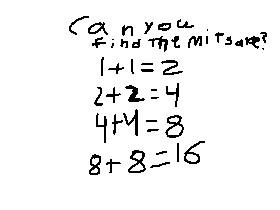 Can you
find the mitsake?
1+1=2
2+2=4
4+4=8
8+8=16